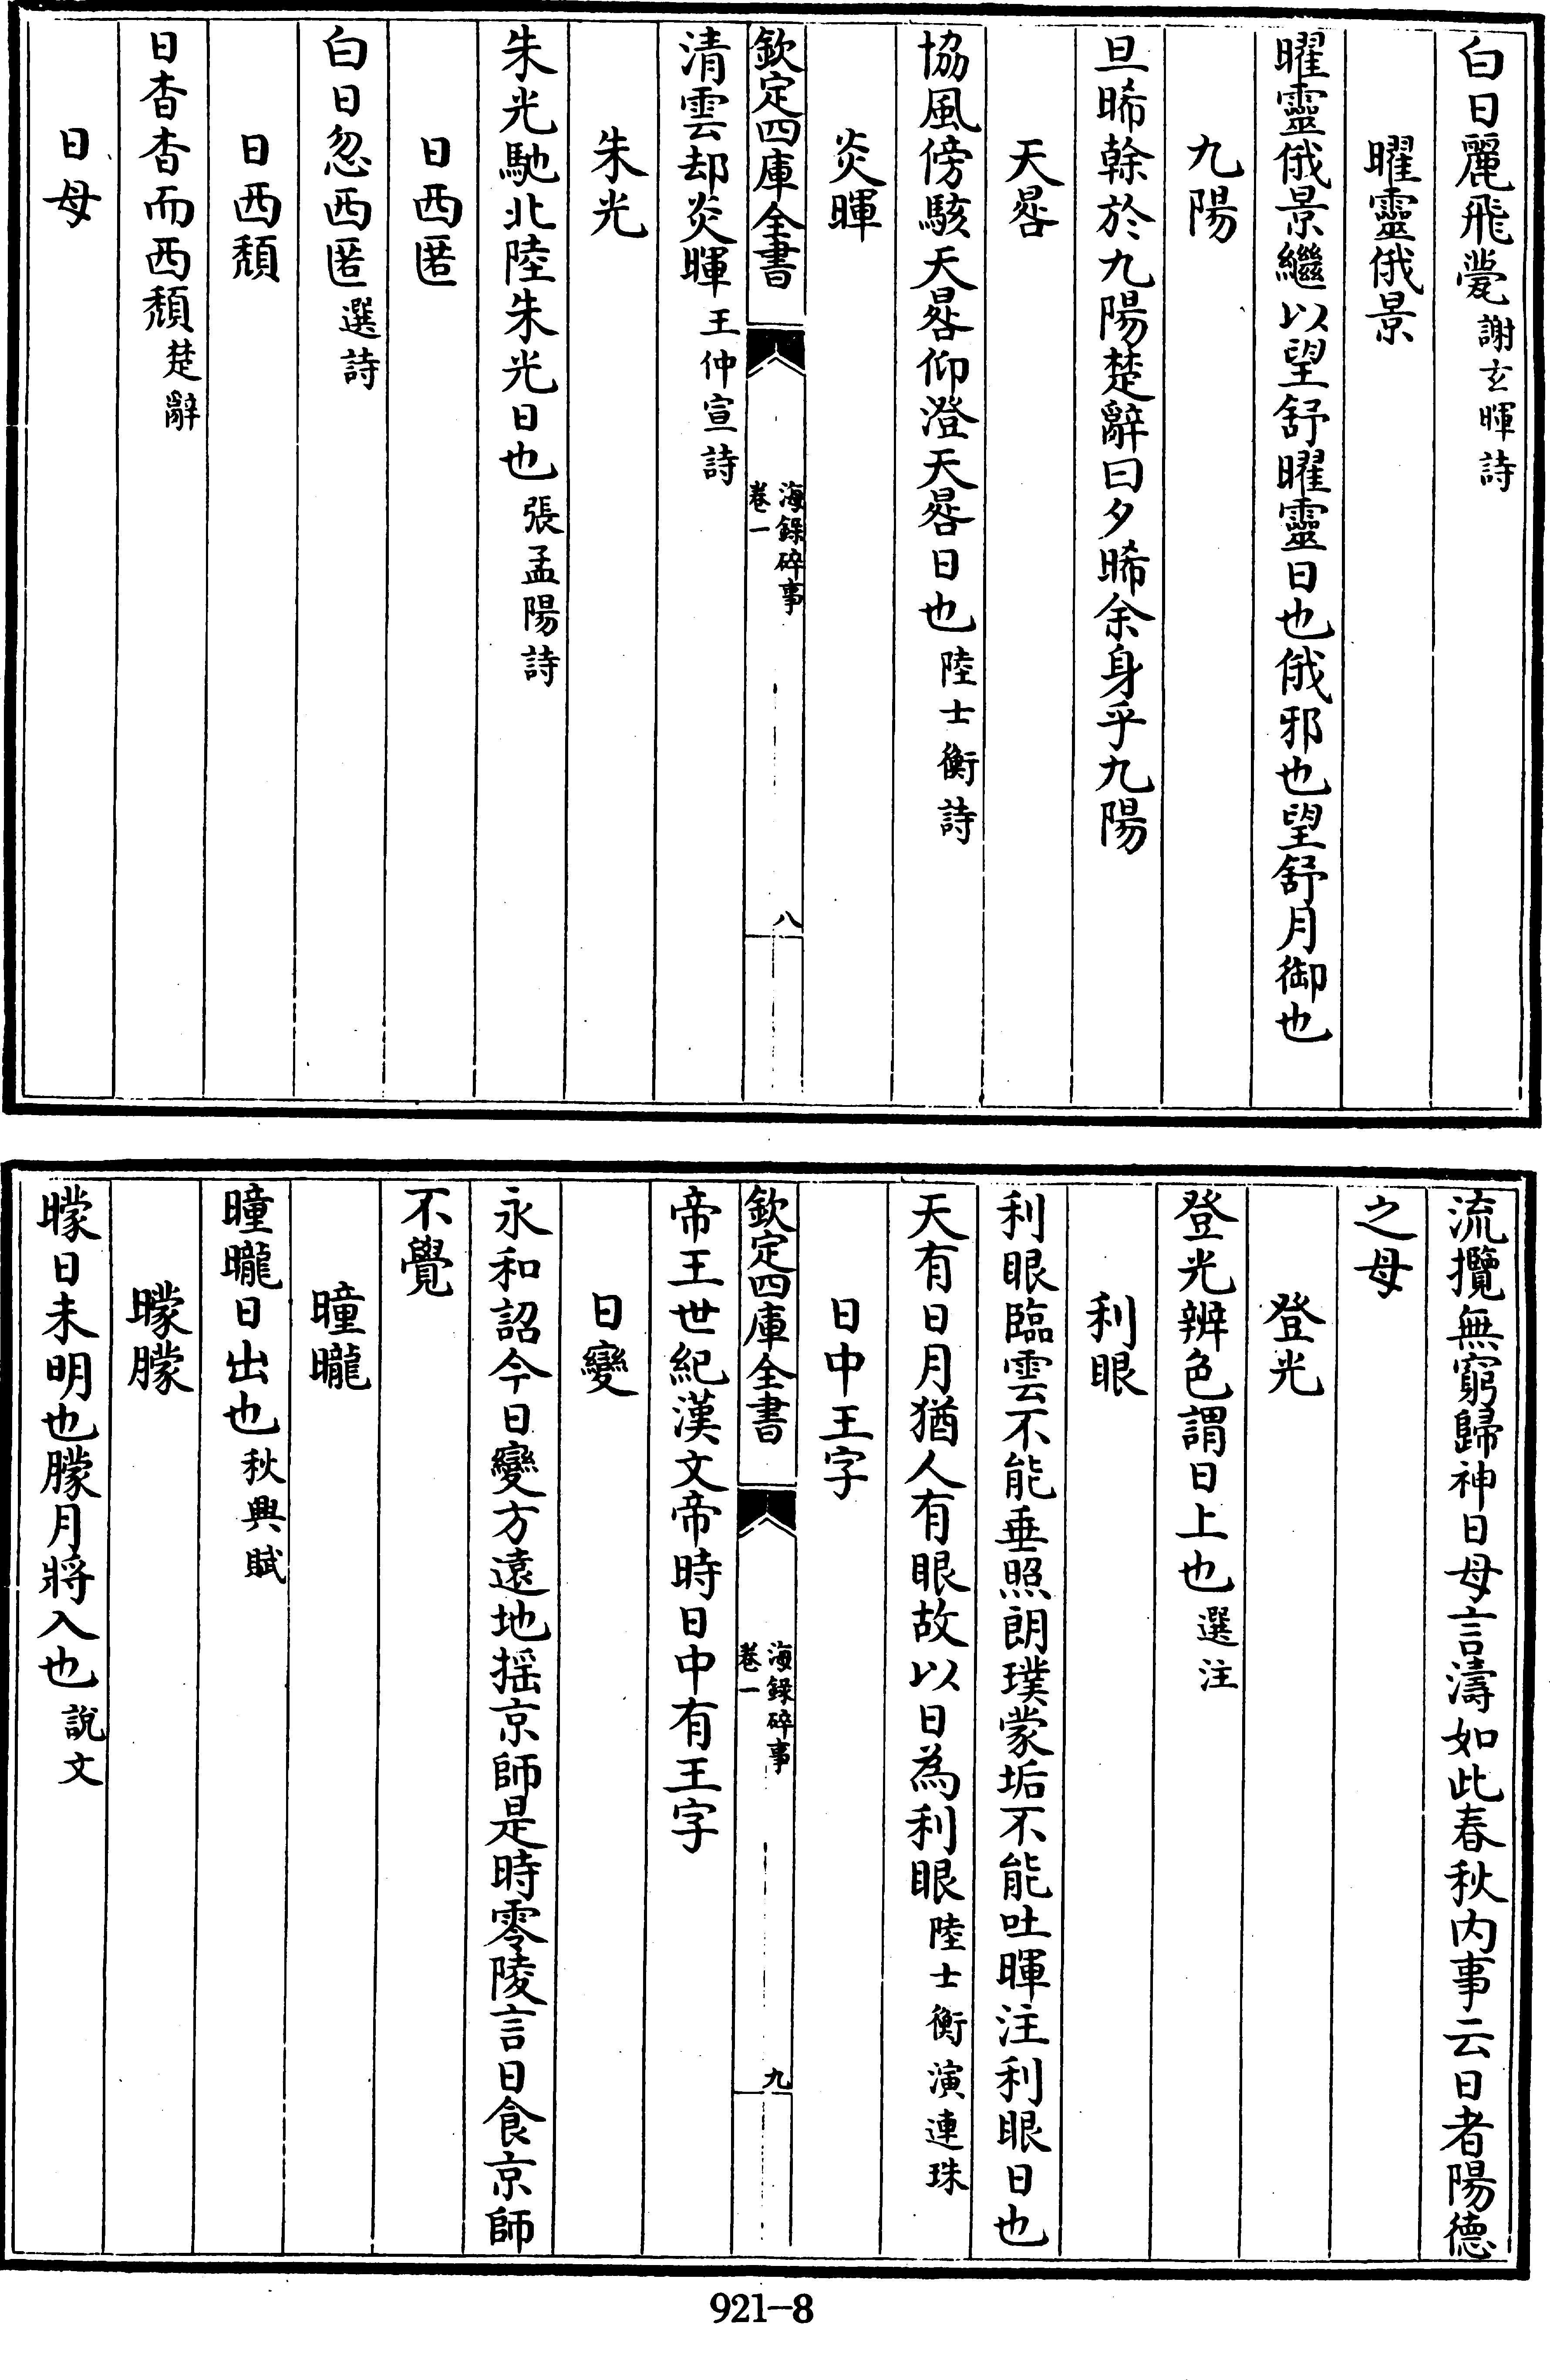 白日麗飛甍謝玄暉詩
曜靈俄景
曜靈俄景繼以望舒曜靈日也俄邪也望舒月御也
九陽
旦晞幹於九陽楚辭曰夕晞余身乎九陽
天晷
協風傍駭天晷仰澄天晷日也陸士衡詩
炎暉
欽定四庫全書
海錄碎事
卷一
八
清雲却炎暉王仲宣詩
朱光
朱光馳北陸朱光日也張孟陽詩
日西匿
白日忽西匿選詩
日西頹
日杳杳而西頹楚辭
日母
流攬無窮歸神日母言濤如此春秋内事云日者陽德
之母
登光
登光辨色謂日上也選注
利眼
利眼臨雲不能垂照朗璞蒙垢不能吐暉注利眼日也
天有日月猶人有眼故以日為利眼陸士衡演連珠
日中王字
欽定四庫全書
海錄碎事
卷一
九
帝王世紀漢文帝時日中有王字
日變
永和詔今日變方遠地揺京師是時零陵言日食京師
不覺
曈曨
曈曨日出也秋興賦
曚朦
曚日未明也朦月將入也說文
921-8